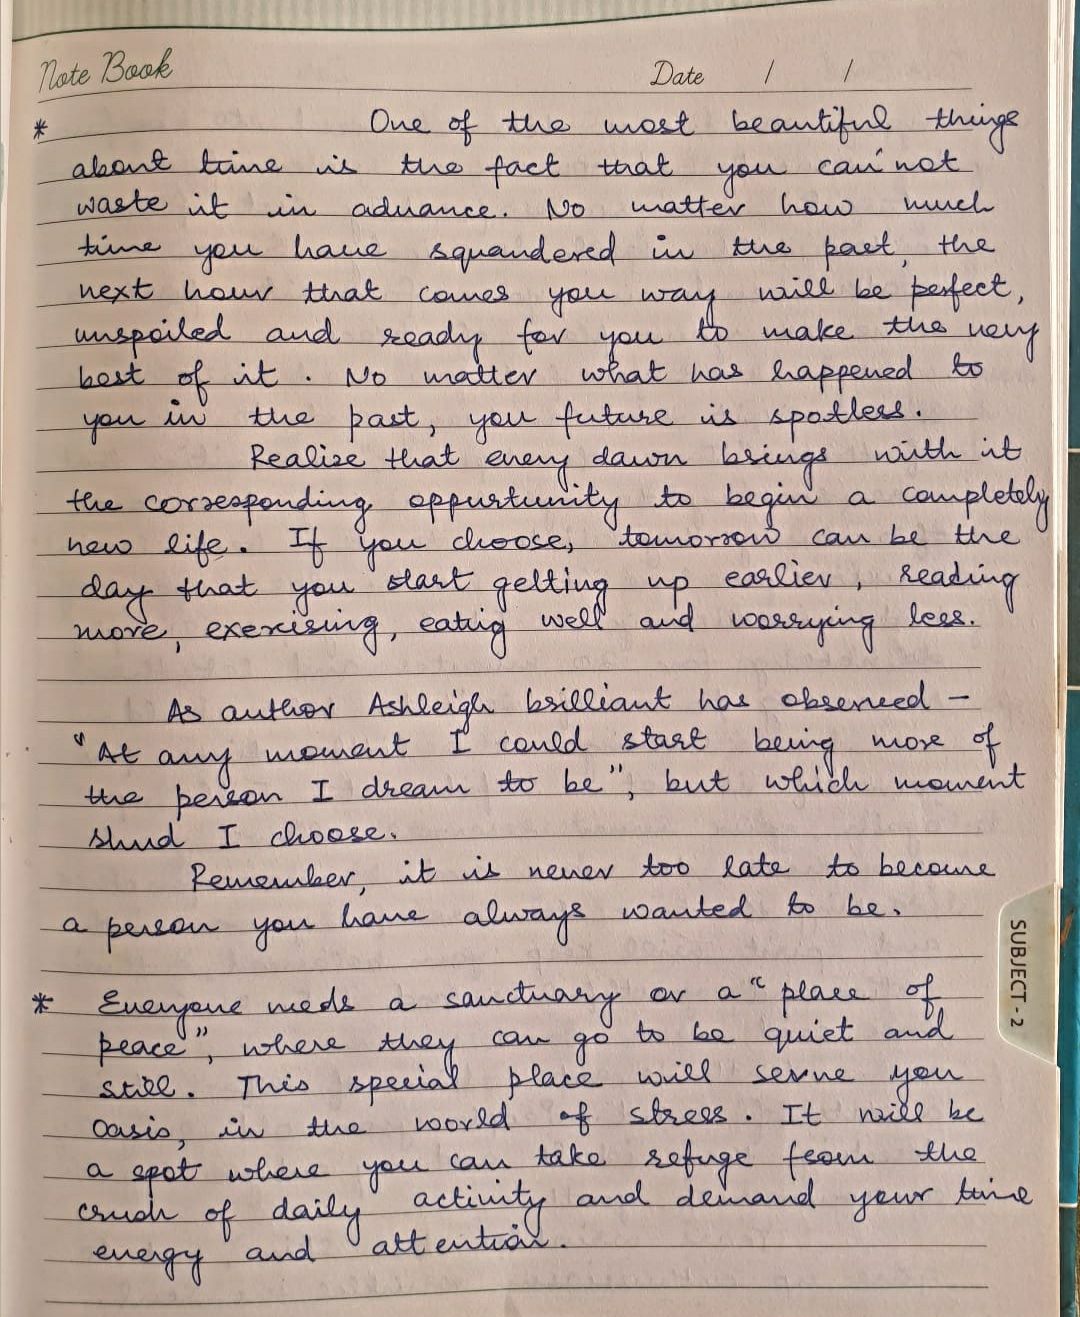 Note Book
Date / /
* One of the most beautiful things
about time is the fact that you can'not
waste it in advance. No matter how much
time you have squandered in the past, the
next hour that comes you way will be perfect,
unspoiled and ready for you to make the very
best of it. No matter what has happened to
you in the past, you future is spotless.
Realise that every dawn brings with it
the corresponding oppurtunity to begin a completely
new life. If you choose, tomorrow can be the
day that you start getting up earlier, reading
more, exercising, eatig well and worrying less.
As author Ashleigh brilliant has observed –
"At any moment I could start being more of
the person I dream to be", but which moment
shud I choose.
Remember, it is never too late to become
a person you have always wanted to be.
* Everyone needs a sanctuary or a "place of
peace", where they can go to be quiet and
still. This special place will serve you
oasis, in the world of stress. It will be
a spot where you can take refuge from the
crush of daily activity and demand your time
energy and attention.
SUBJECT - 2